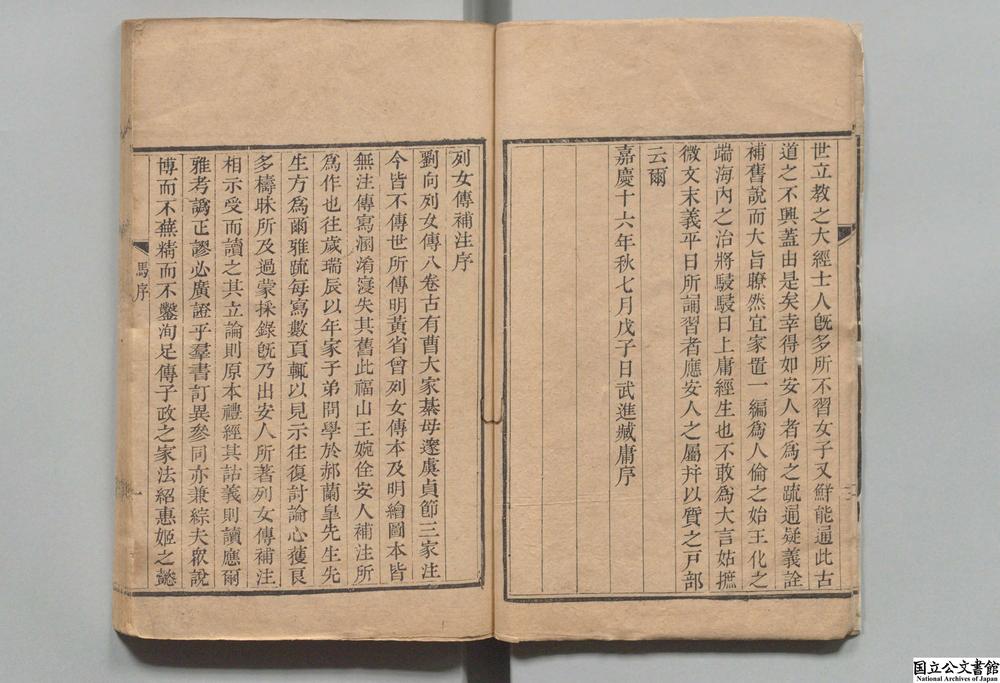 世立教之大經士人旣多所不習女子又鮮能通此古
道之不興蓋由是矣幸得如安人者爲之疏通疑義詮
補舊說而大旨瞭然宜家置一編爲人倫之始王化之
端海內之治將駸駸日上庸經生也不敢爲大言姑摭
微文末義平日所誦習者應安人之屬幷以質之戸部
云爾
嘉慶十六年秋七月戊子日武進臧庸序
列女傳補注序
劉向列女傳八卷古有曹大家綦母邃虞貞節三家注
今皆不傳世所傳明黃省曾列女傳本及明繪圖本皆
無注傳寫溷淆寖失其舊此福山王婉佺安人補注所
爲作也往歲瑞辰以年家子弟問學於郝蘭皇先生先
生方爲爾雅疏每寫數頁輒以見示往復討論心獲良
多檮昧所及過蒙採錄旣乃出安人所著列女傳補注
相示受而讀之其立論則原本禮經其詁義則讀應爾
雅考譌正謬必廣證乎羣書訂異參同亦兼綜夫眾說
博而不蕪精而不鑿洵足傳子政之家法紹惠姬之懿
馬序
一
国立公文書館
National Archives of Japan